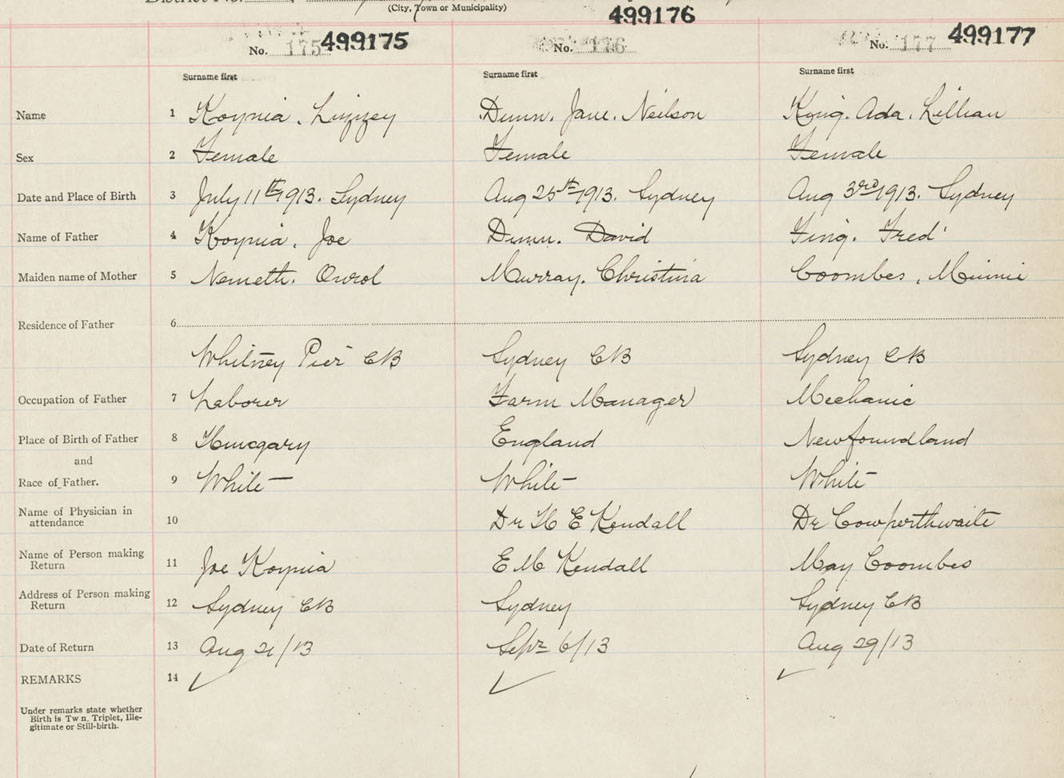 District No.
(City, Town or Municipality)
No. 175 499175
No. 176 499176
No. 177 499177
Surname first Surname first Surname first
Name 1 Koynia, Lizzey Dunn. Jane. Neilson King. Ada. Lillian
Sex 2 Female Female Female
Date and Place of Birth 3 July 11th 1913. Sydney Aug 25th 1913. Sydney Aug 3rd 1913. Sydney
Name of Father 4 Koynia, Joe Dunn. David King. Fred'
Maiden name of Mother 5 Nemeth. Murray. Christina Coombes, Minnie
Residence of Father 6
Whitney Pier CB Sydney CB Sydney CB
Occupation of Father 7 Laborer Farm Manager Mechanic
Place of Birth of Father 8 Hungary England Newfoundland
and
Race of Father. 9 White White White
Name of Physician in
attendance 10 Dr H E Kendall Dr Cowperthwaite
Name of Person making
Return 11 Joe Koynia E M Kendall May Coombes
Address of Person making
Return 12 Sydney CB Sydney Sydney CB
Date of Return 13 Aug 21/13 Sept 6/13 Aug 29/13
REMARKS 14
Under remarks state whether
Birth is Tw n, Triplet, Ille-
gitimate or Still-birth.